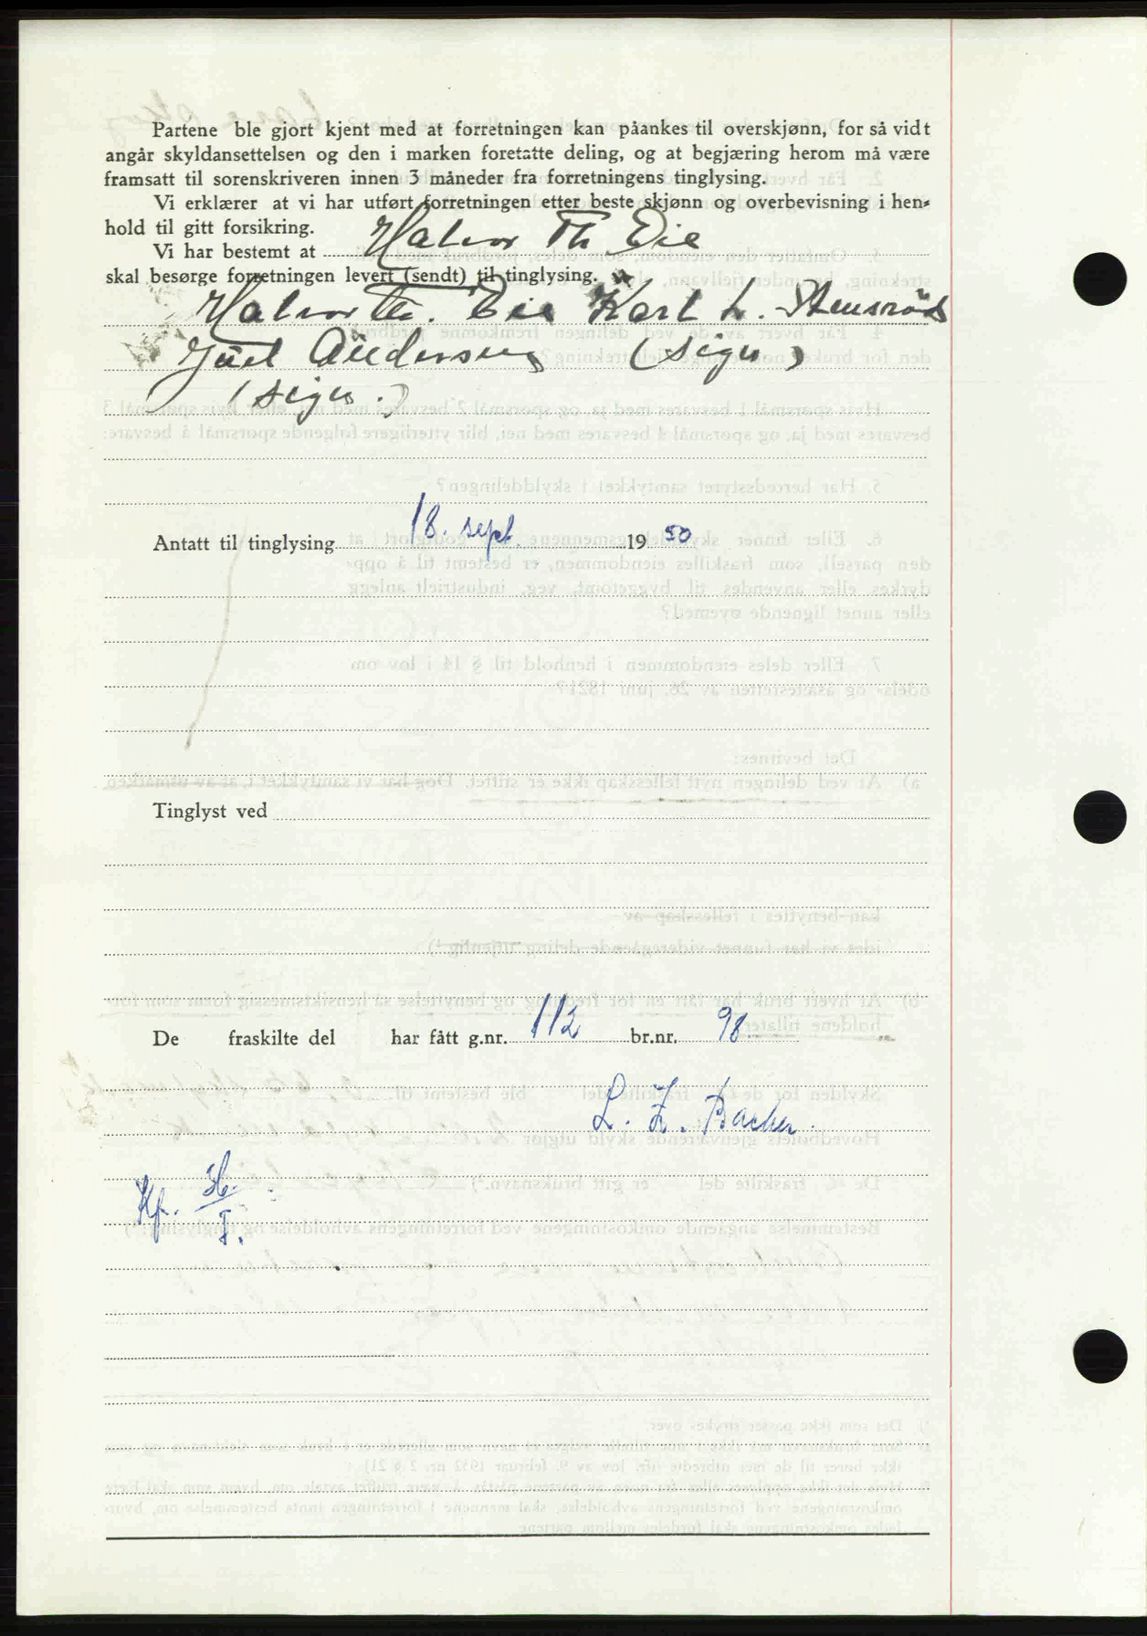 Partene ble gjort kjent med at forretningen kan påankes til overskjønn, for så vidt
angår skyldansettelsen og den i marken foretatte deling, og at begjæring herom må være
framsatt til sorenskriveren innen 3 måneder fra forretningens tinglysing.
Vi erklærer at vi har utført forretningen etter beste skjønn og overbevisning i hen-
hold til gitt forsikring.
Vi har bestemt at Halvor Th Eie
skal besørge forretningen levert (sendt) til tinglysing.
Halvor Th. Eie Karl L. Stensrød
Juel Andersen (sign)
(sign.)
Antatt til tinglysing 18. sept. 19 50
Tinglyst ved
De fraskilte del har fått g.nr. 112 br.nr. 98.
L. Z. Backer.
Kf. 36.
I.